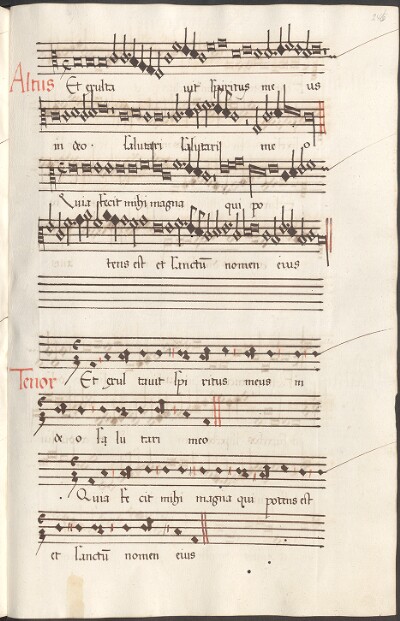 Altus Et exulta vit spiritus me us
in deo . salutari salutari me o
Quia fecit mihi magna qui po
tens est et sanctū nomen eius
Tenor Et exul tavit spi ritus meus in
de o sa lu tari meo
Quia fe cit mihi magna qui potens est
et sanctū nomen eius